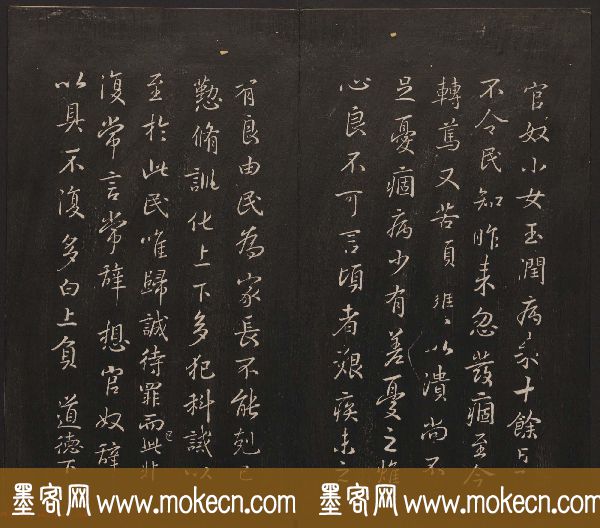 官奴小女玉潤病來十餘日
不令民知昨來忽發痼至今
轉篤又苦頭癰〻以潰尚不
足憂痼病少有差憂之燋
心良不可言頃者艱疾未之
有良由民為家長不能剋己
懃脩訓化上下多犯科誡以
至於此民唯歸誠待罪而已此非
復常言常辭想官奴辭
以具不復多白上負 道德下
墨客网 www.mokecn.com
墨客网 www.mokecn.com